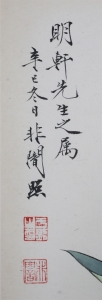 明軒先生之属
辛巳冬日非闇照